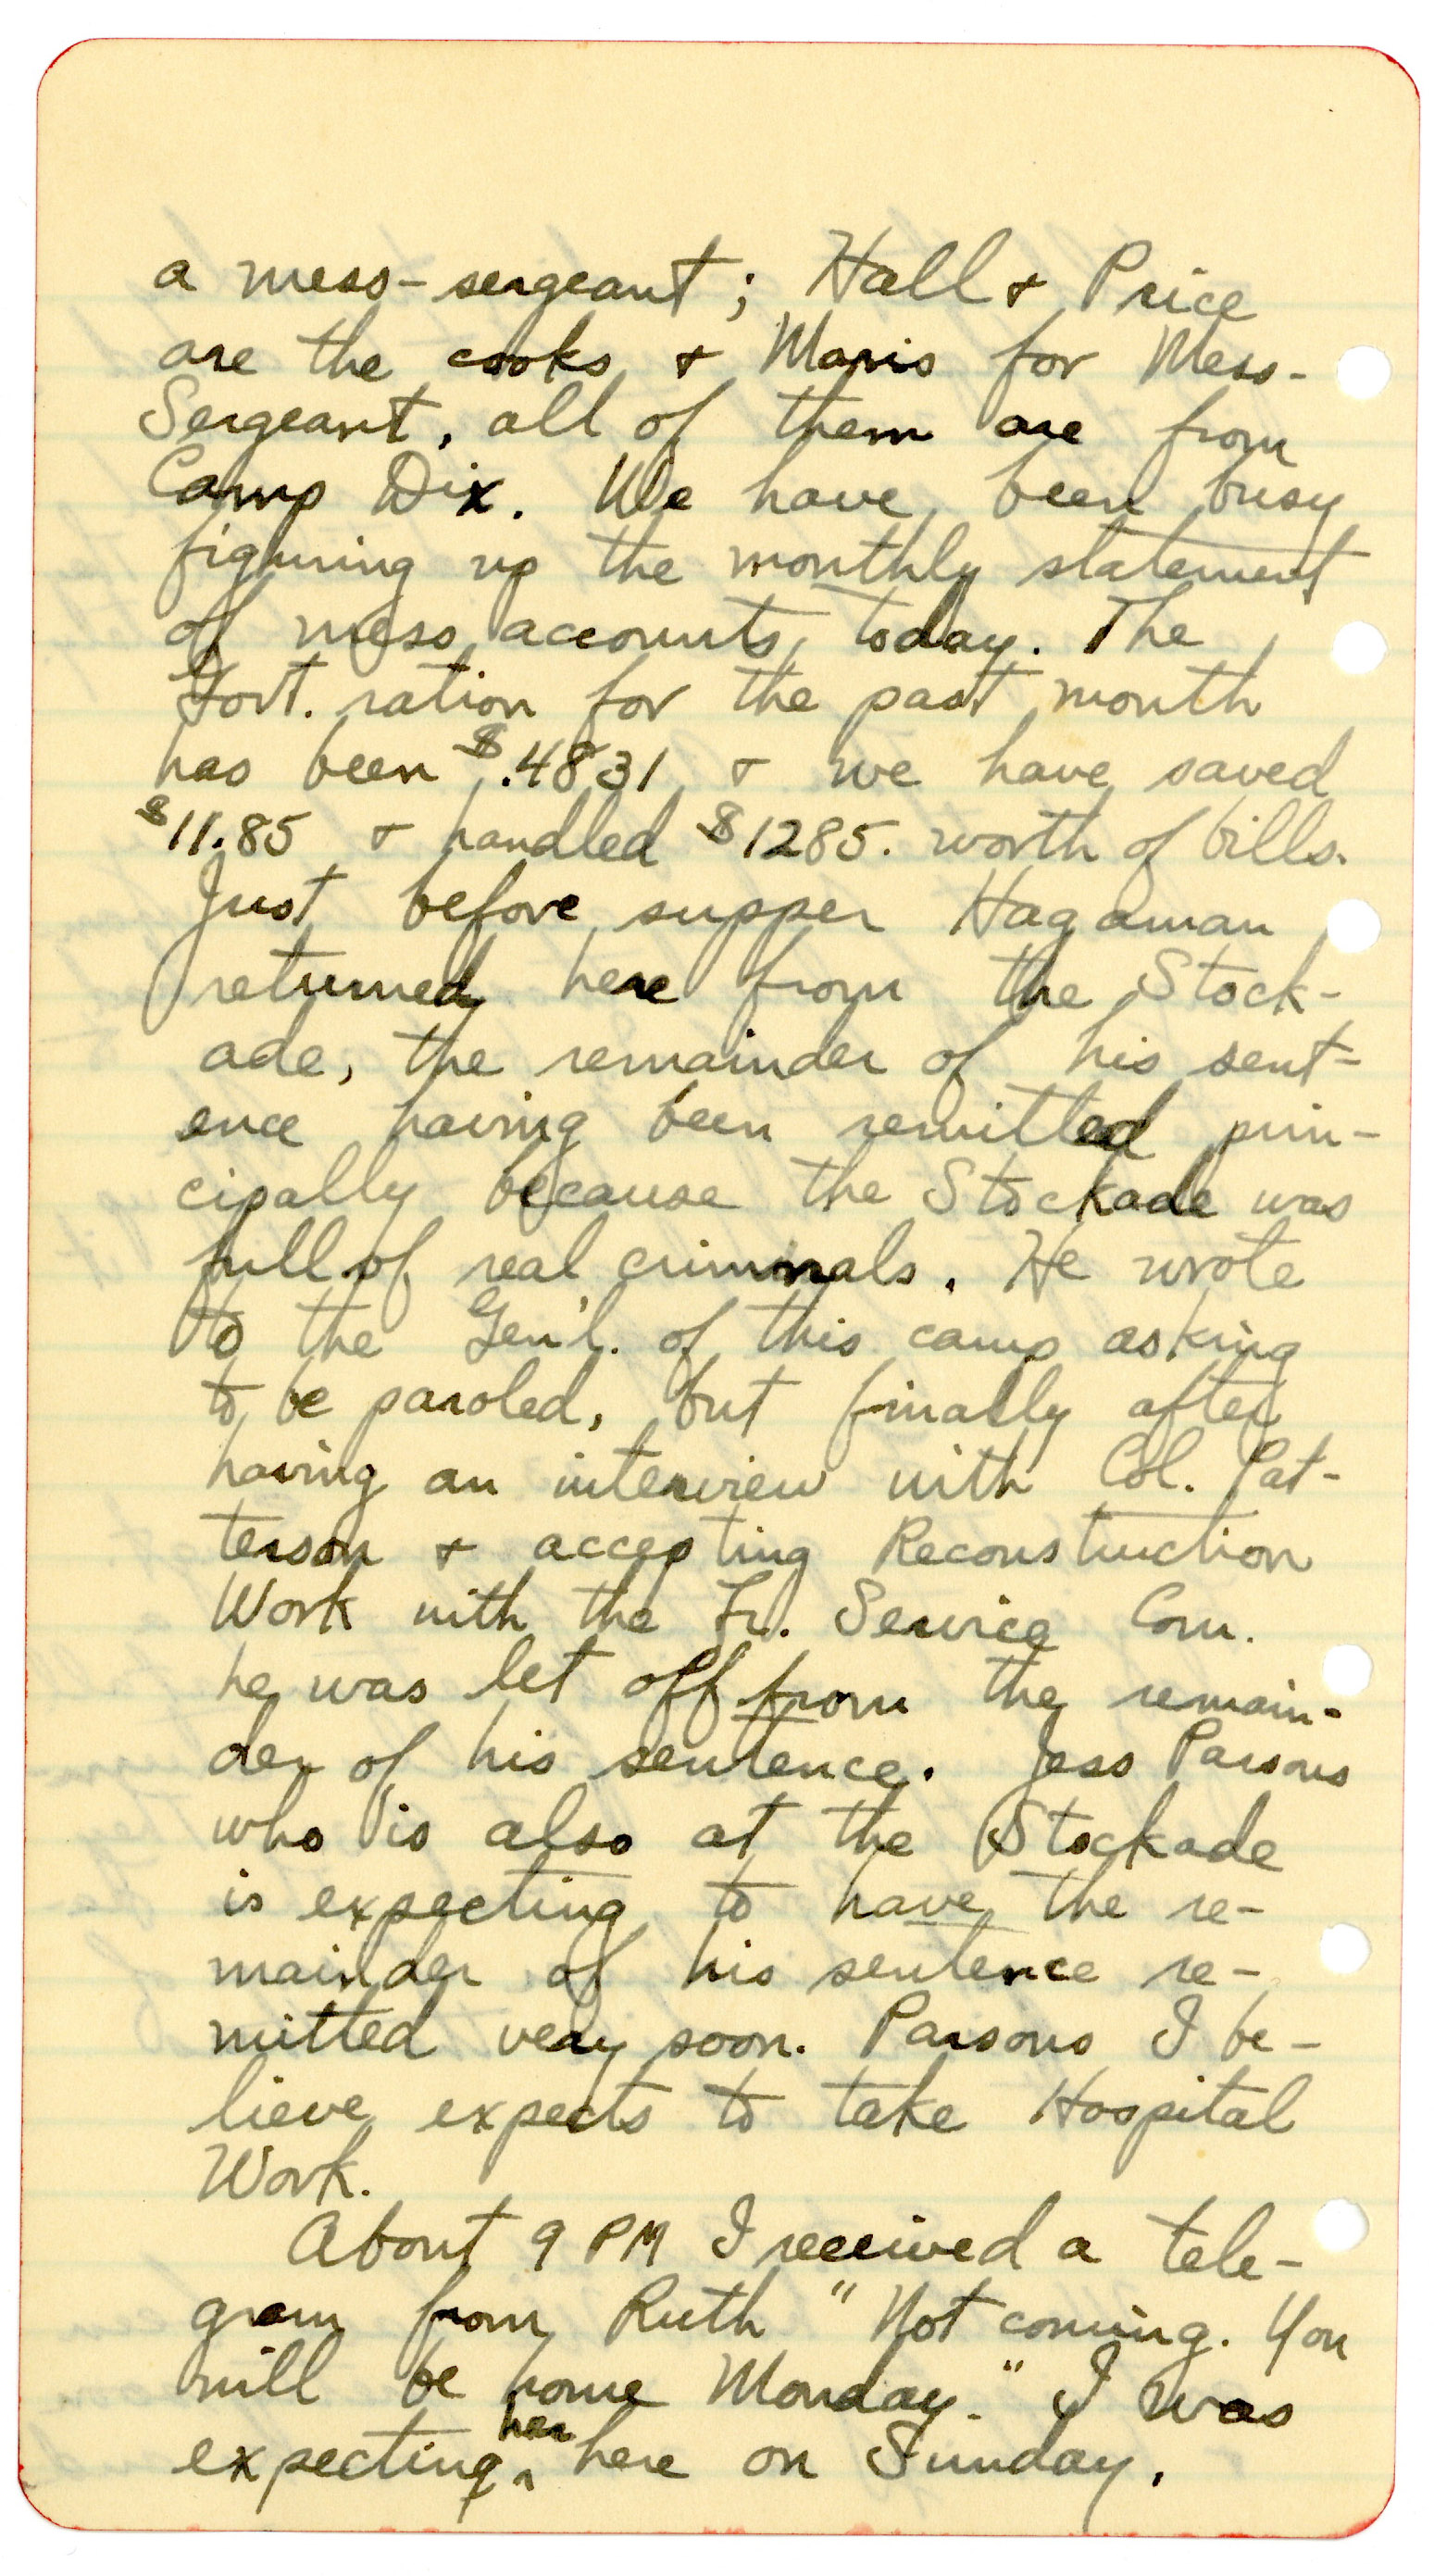 a mess-sergeant; Hall & Price
are the cooks & Maris for Mess-
Sergeant, all of them are from
Camp Dix. We have been busy
figuring up the monthly statement
of mess accounts today. The
Govt. ration for the past month
has been $.4831 & we have saved
$11.85 & handled $1285. worth of bills.
Just before supper Hagaman
returned here from the Stock-
ade, the remainder of his sent-
ence having been remitted prin-
cipally because the Stockade was
full of real criminals. He wrote
to the Gen'l. of this camp asking
to be paroled, but finally after
having an interview with Col. Pat-
terson & accepting Reconstruction
Work with the Fr. Service Com.
he was let off from the remain-
der of his sentence. Jess Parsons
who is also at the Stockade
is expecting to have the re-
mainder of his sentence re-
mitted very soon. Parsons I be-
lieve expects to take Hospital
Work.
About 9 PM I received a tele-
gram from Ruth "Not coming. You
will be home Monday." I was
expecting ^her here on Sunday.